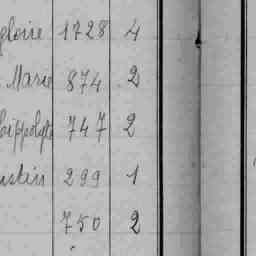 gloire 1728 4
Marie 874 2
hippolyte 747 2
ustin 299 1
750 2